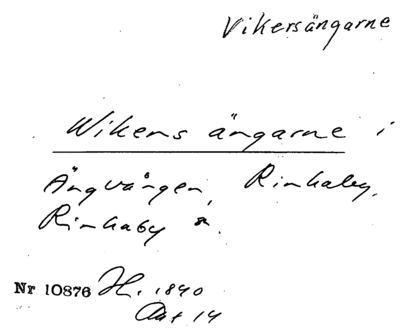 Vikersängarne
Wikens ängarne i
Ängvången, Rinkaby,
Rinkaby sn.
Nr 10876 H. 1840
Akt 14